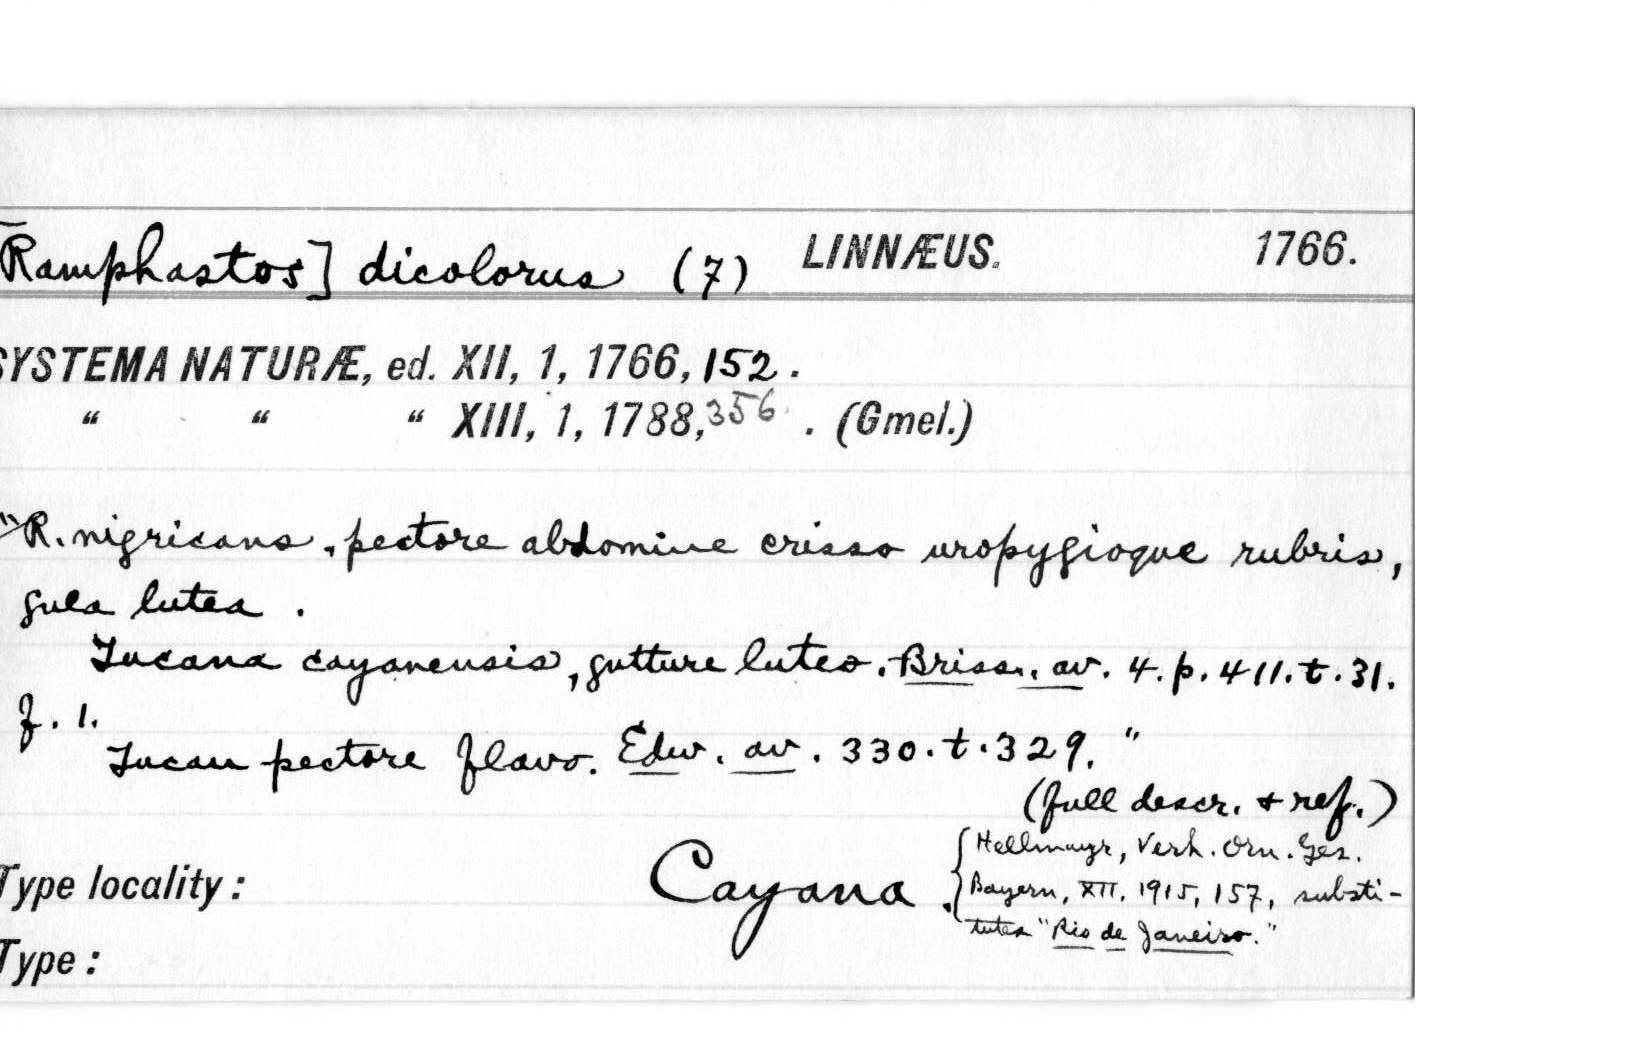 [Ramphastos] dicolorus (7) LINNÆUS. 1766.
SYSTEMA NATURÆ, ed. XII, 1, 1766, 152.
“ “ “ XIII, 1, 1788, 356. (Gmel.)
"R. nigricans, pectore abdomine crisso uropygioque rubris,
gula lutea.
Tucana cayanensis, gutture luteo. Briss. av. 4. p. 411. t. 31.
f. 1.
Tucan pectore flavo. Edw. av. 330. t. 329."
(full descr. & ref.)
Type locality: Cayana. {Hellmayr, Verh. Orn. Ges.
Bayern, XII, 1915, 157, substi-
tutes "Rio de Janeiro."
Type: